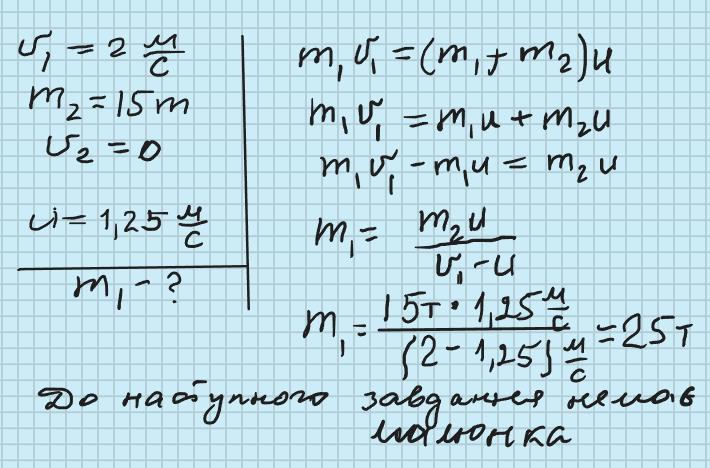 υ₁ = 2 м/с
m₂ = 15 т
υ₂ = 0
u = 1,25 м/с
m₁ - ?
m₁υ₁ = (m₁ + m₂)u
m₁υ₁ = m₁u + m₂u
m₁υ₁ - m₁u = m₂u
m₁ = m₂u / (υ₁ - u)
m₁ = 15т · 1,25 м/с / (2 - 1,25) м/с = 25 т
До наступного завдання немає
малюнка